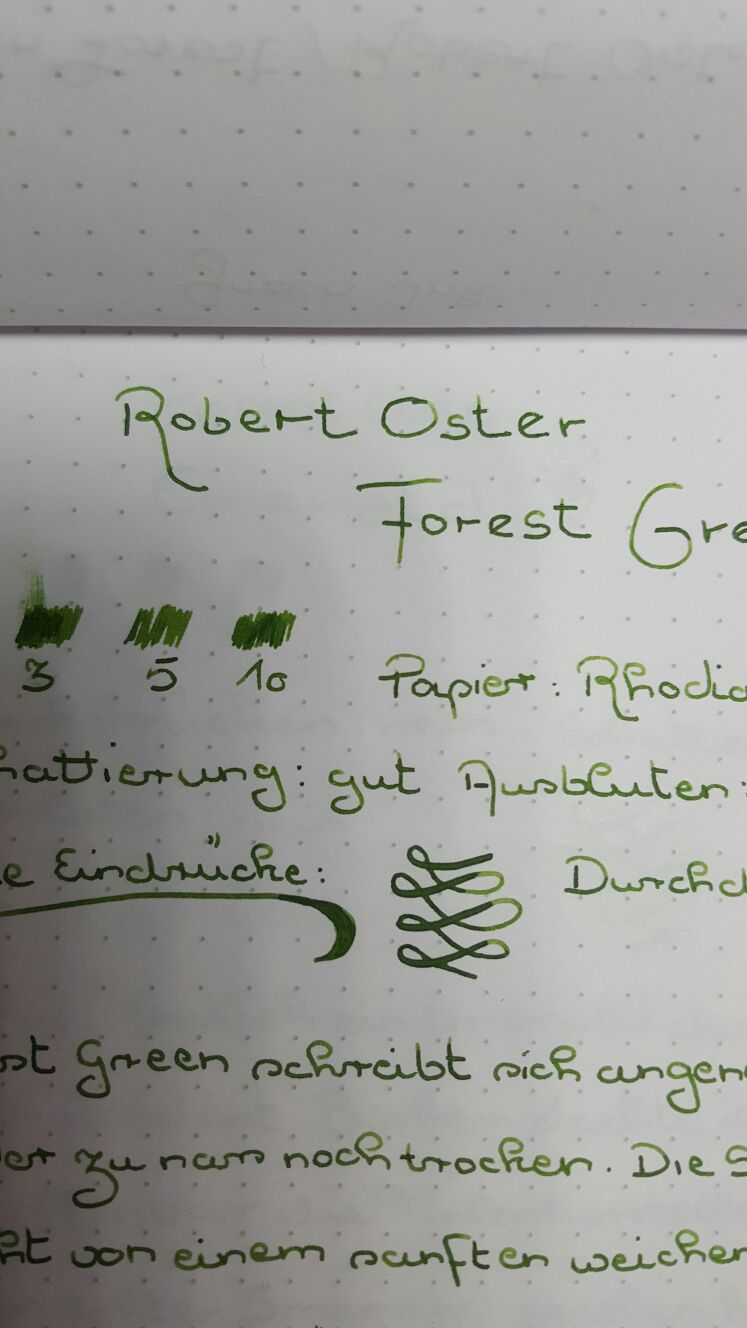 Robert Oster
Forest Gre
3 5 10 Papier: Rhodia
hattierung: gut Ausbluten:
e Eindrücke: Durchd
st Green schreibt sich angen
er zu nass noch trocken. Die S
ht von einem sanften weichen